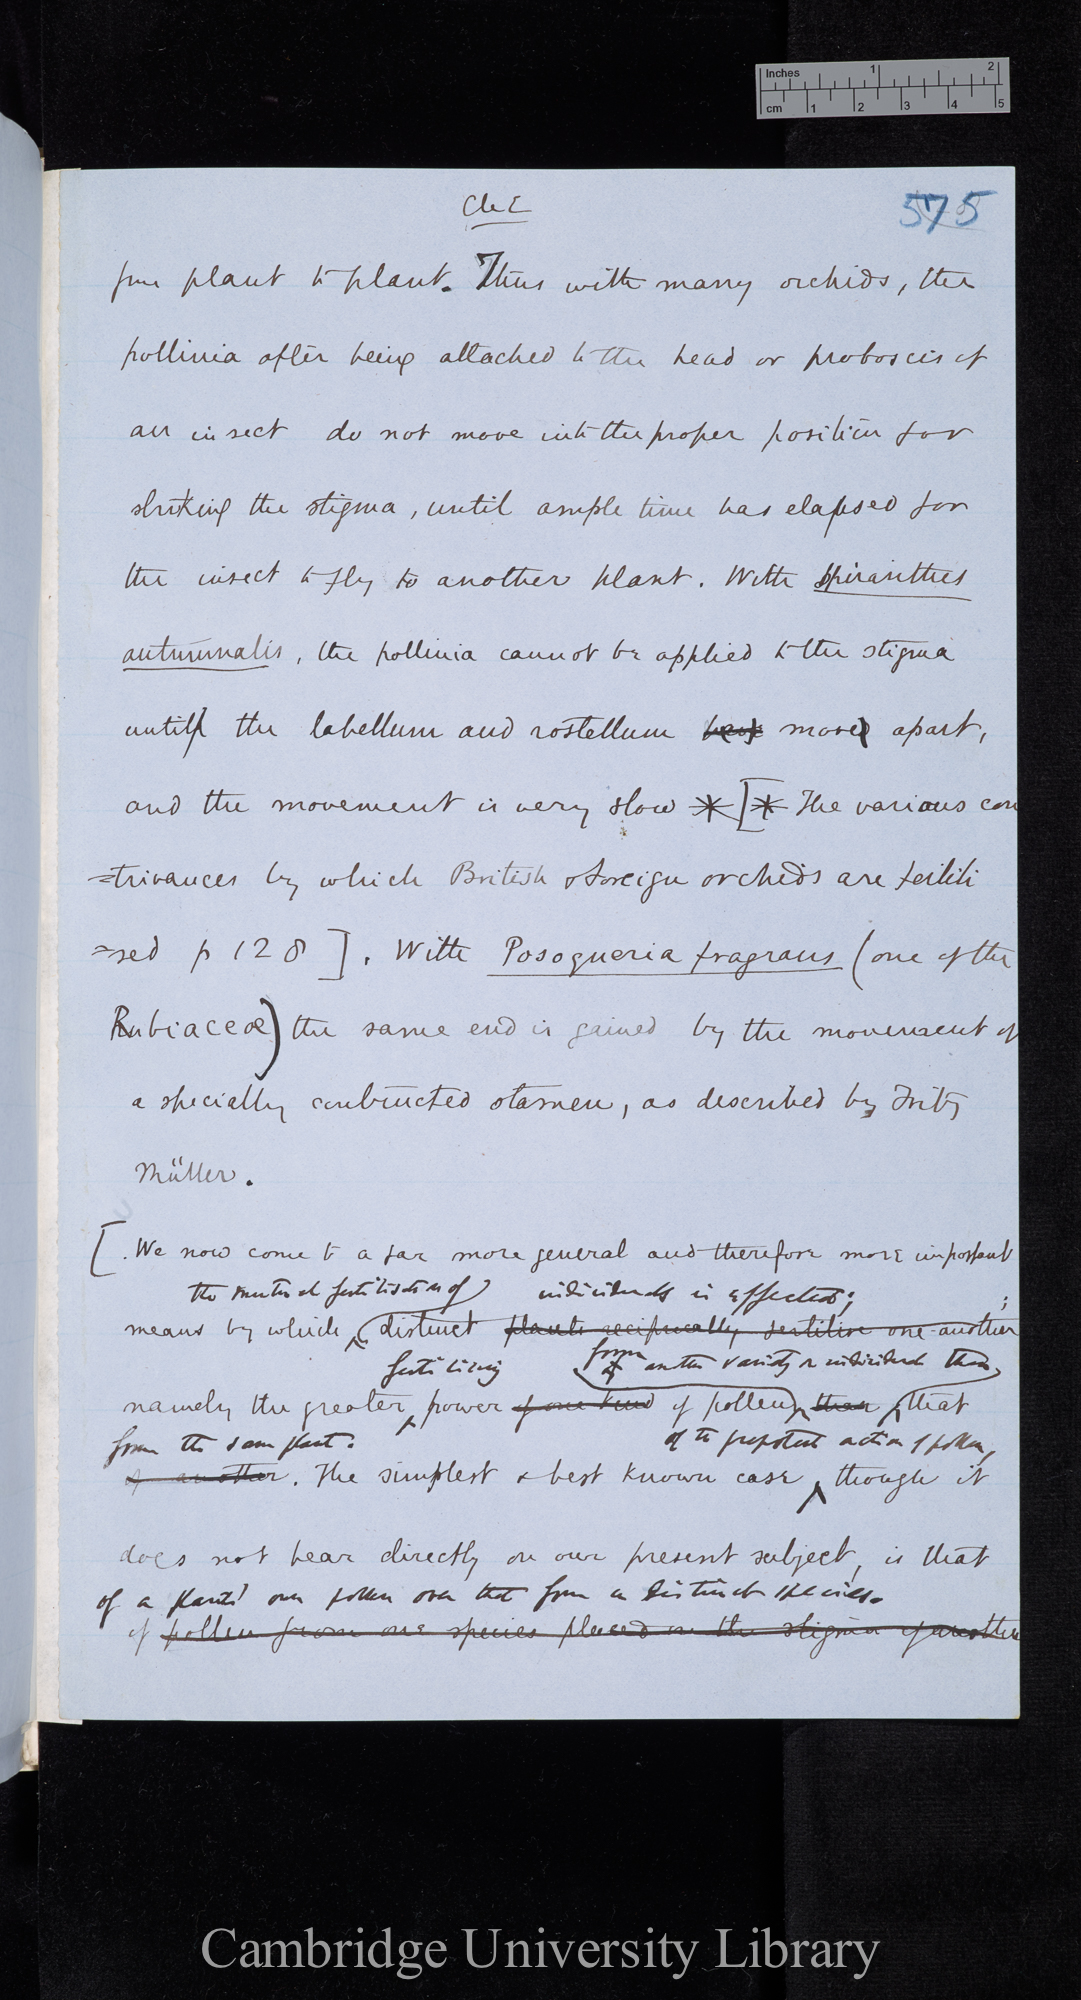 Inches 1 2
cm 1 2 3 4 5
Ch E
575
from plant to plant. Thus with many orchids, the
pollinia after being attached to the head or proboscis of
an insect do not move into the proper position for
striking the stigma, until ample time has elapsed for
the insect to fly to another plant. With Spiranthes
autumnalis, the pollinia cannot be applied to the stigma
until the labellum and rostellum have moved apart,
and the movement is very slow * [* The various con
=trivances by which British & foreign orchids are fertili
=sed p 128]. With Posoqueria fragrans (one of the
Rubiaceæ) the same end is gained by the movement of
a specially constructed stamen, as described by Fritz
Müller.
[. We now come to a far more general and therefore more important
the mutual fertilisation of individuals is effected;
means by which distinct plants reciprocally fertilise one another;
fertilising from another variety or individual than
namely the greater power of one kind of pollen than that
from the same plant. of the prepotent action of pollen,
of another. The simplest & best known case, though it
does not bear directly on our present subject, is that
of a plants' own pollen over that from a distinct species.
of pollen from one species placed on the stigma of another
Cambridge University Library